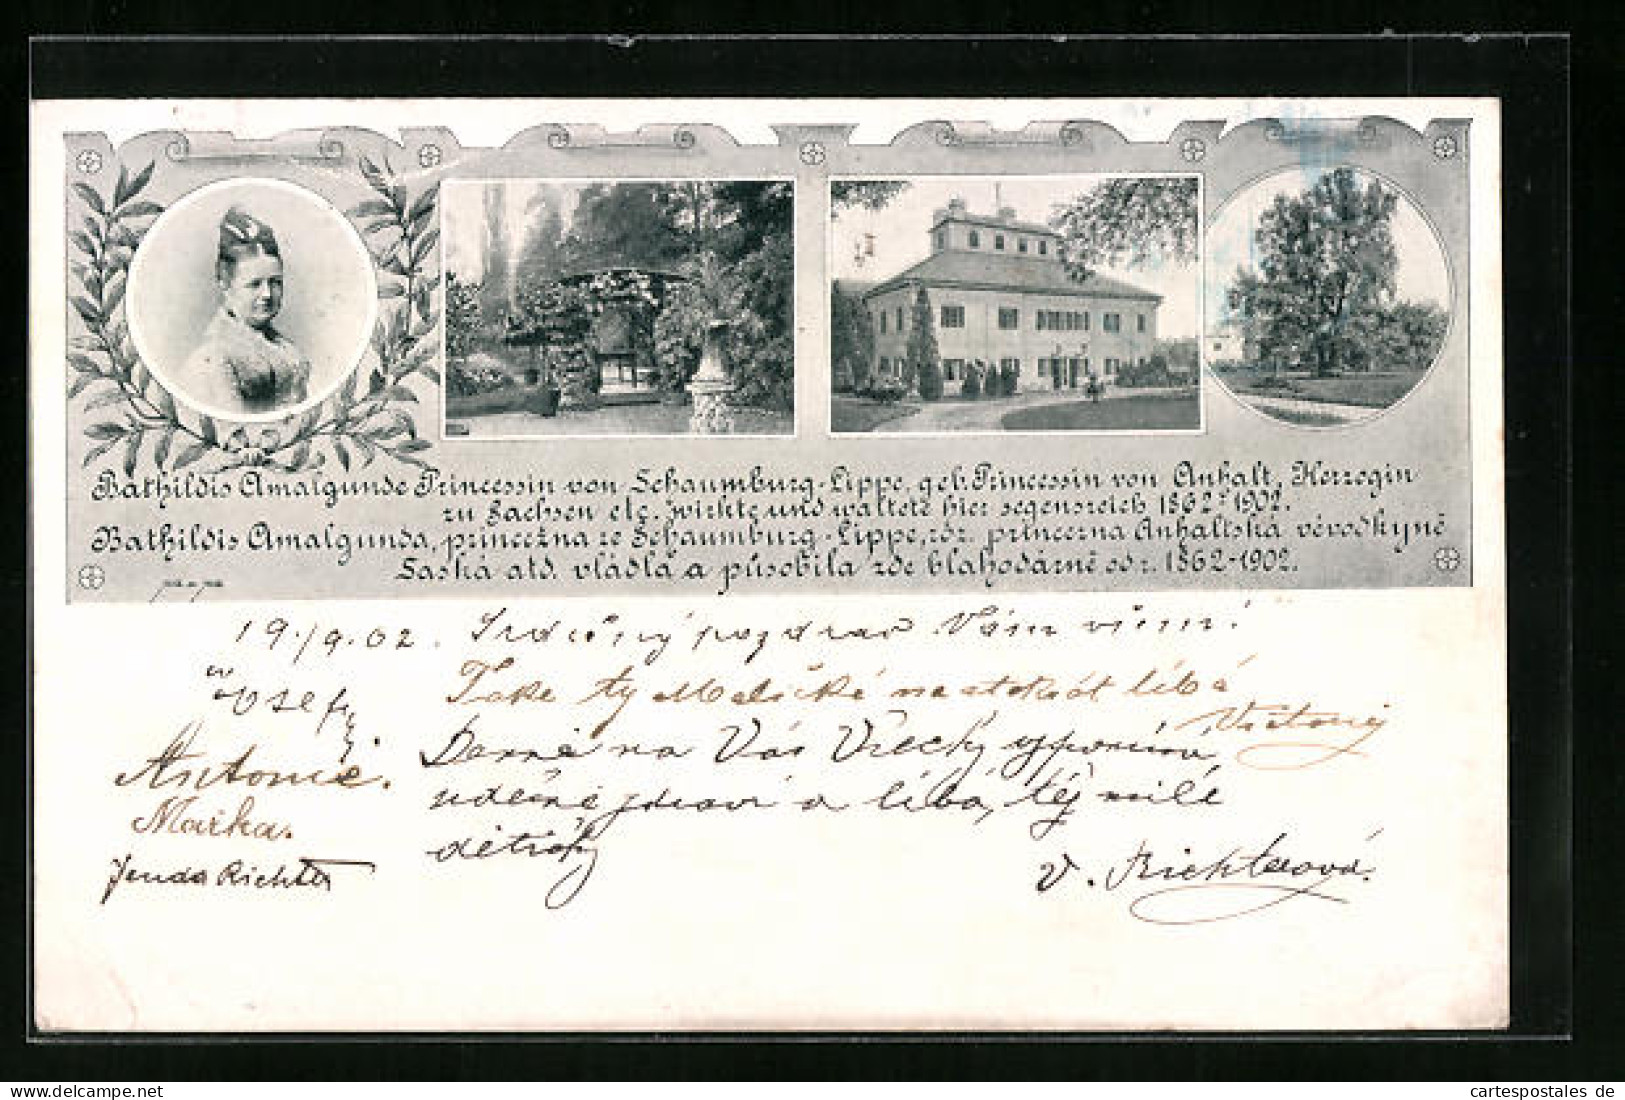 Bathildis Amalgunde Princessin von Schaumburg-Lippe, geb. Princessin von Anhalt, Herzogin
zu Sachsen etc. wirkte und waltete hier segensreich 1862-1902.
Bathildis Amalgunda, princezna ze Schaumburg-Lippe, roz. princezna Anhaltská vévodkyně
Saská atd. vládla a působila zde blahodárně od r. 1862-1902.
19./9. 02. Srdečný pozdrav Vám všem!
Také ty Maličké nastokrát líbá
Josef
Denně na Vás Všecky vzpomíná
Antonie.
uděčně zdraví a líbá, též milé
Mařka.
dětičky
Jenda Richter
V. Richterová.
cartespostales de